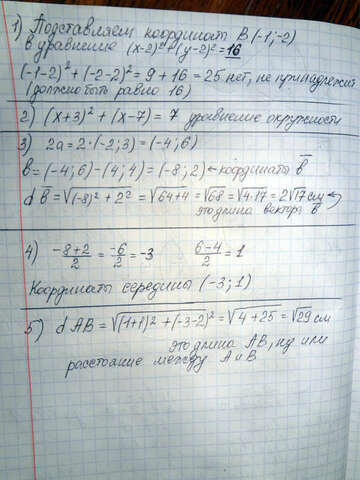 1) Подставляем координаты B (-1;-2)
в уравнение (x-2)²+(y-2)²=16
(-1-2)²+(-2-2)²=9+16=25 нет, не принадлежит
(должно быть равно 16)
2) (x+3)²+(x-7)=7 уравнение окружности
3) 2a=2·(-2;3)=(-4;6)
b=(-4;6)-(4;4)=(-8;2)←координата b̅
d b̅=√(-8)²+2²=√64+4=√68=√4·17=2√17 см
это длина вектора b̅
4) -8+2/2=-6/2=-3 6-4/2=1
Координаты середины (-3;1)
5) d AB=√(1+1)²+(-3-2)²=√4+25=√29 см
это длина AB, или
расстояние между A и B